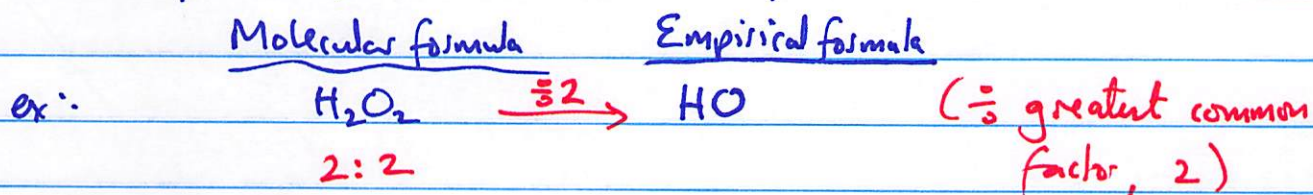 Molecular formula Empirical formula
ex: H₂O₂ ÷2 → HO (÷ greatest common
2:2 factor, 2)